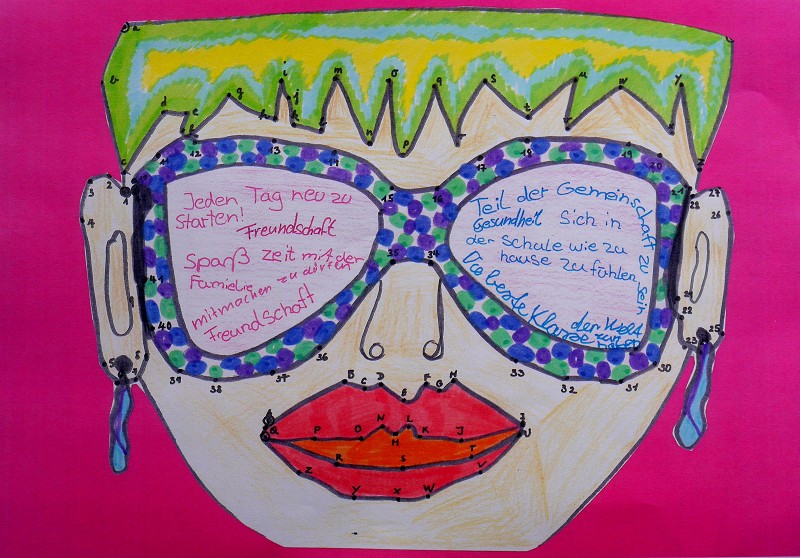 Jeden Tag neu zu
Starten!
Freundschaft
Spaß zeit mit der
Famielie
mitmachen zu dürfen
Freundschaft
Teil der Gemeinschaft zu sein
Gesundheit Sich in
der Schule wie zu
hause zu fühlen
Die beste Klasse der Welt